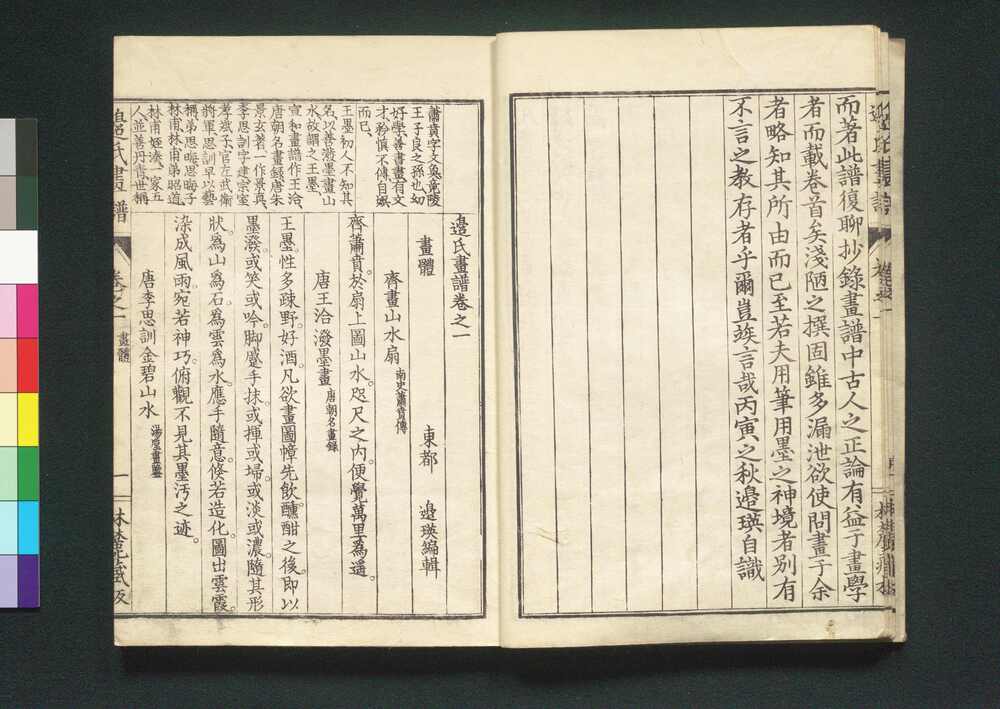 而著此譜復聊抄錄畫譜中古人之正論有益于畫學
者而載卷首矣淺陋之撰固雖多漏泄欲使問畫于余
者略知其所由而已至若夫用筆用墨之神境者別有
不言之教存者乎爾豈竢言哉丙寅之秋邉瑛自識
蕭賁字文奐竟陵
王子良之孫也幼
好學善書畫有文
才矜慎不傳自娯
而已
王墨初人不知其
名以善潑墨畫山
水故謂之王墨
宣和畫譜作王洽
唐朝名畫録唐朱
景玄著一作景真
李思訓字建宗室
孝斌子官左武衛
將軍思訓早以藝
稱弟思晦思晦子
林甫林甫弟昭道
林甫姪湊一家五
人並善丹青世稱
邉氏畫譜卷之一
畫體 東都 邉瑛編輯
齊畫山水扇 南史蕭賁傳
齊蕭賁於扇上圖山水咫尺之内便覺萬里為遥
唐王洽潑墨畫 唐朝名畫錄
王墨性多疎野好酒凡欲畫圖幛先飲醺酣之後即以
墨潑或笑或吟脚蹙手抹或揮或埽或淡或濃隨其形
狀為山為石為雲為水應手隨意倏若造化圖出雲霞
染成風雨宛若神巧俯觀不見其墨汚之迹
唐李思訓金碧山水 湯垕畫鑒
邉氏畫譜 卷之一 畫體 一